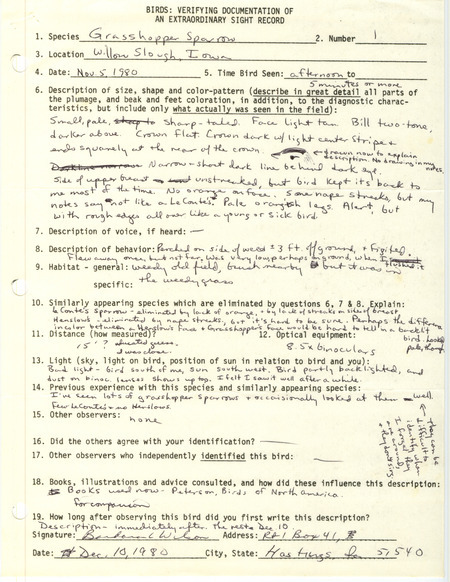 BIRDS: VERIFYING DOCUMENTATION OF
AN EXTRAORDINARY SIGHT RECORD
1. Species Grasshopper Sparrow 2. Number 1
3. Location Willow Slough, Iowa
4. Date: Nov 5, 1980 5. Time Bird Seen: afternoon to
5 minutes or more
6. Description of size, shape and color-pattern (describe in great detail all parts of
the plumage, and beak and feet coloration, in addition, to the diagnostic charac-
teristics, but include only what actually was seen in the field):
Small, pale, sharp-tailed. Face light tan. Bill two-tone,
darker above. Crown flat. Crown dark w/ light center stripe &
ends squarely at the rear of the crown.
drawn now to explain
description. No drawing in my
notes.
Narrow-short dark line behind dark eye.
Side of upper breast unstreaked, but bird kept its back to
me most of the time. No orange on face. Some nape streaks, but my
notes say "not like a LeConte's. Pale orangish legs. Alert, but
with rough edges all over like a young or sick bird.
7. Description of voice, if heard: —
8. Description of behavior: Perched on side of weed ± 3 ft. off ground, & frigited.
Flew away once, but not far. Was very low, perhaps on ground, when I flushed it
9. Habitat - general: weedy old field, brush nearby but it was in
specific: the weedy grass
10. Similarly appearing species which are eliminated by questions 6, 7 & 8. Explain:
LeConte's Sparrow - eliminated by lack of orange, & by lack of streaks on sides of breast.
Henslow's - eliminated by nape streaks, but it's hard to be sure. Perhaps the difference
in color between a Henslow's face & Grasshopper's face would be hard to tell in a backlit
bird. Looked
pale, though
11. Distance (how measured)? 12. Optical equipment:
15' ? guess. 8.5x binoculars
It was close.
13. Light (sky, light on bird, position of sun in relation to bird and you):
Bad light - bird south of me, sun south west. Bird partly backlighted, and
dust on binoc. lenses shows up too. I felt I saw it well after a while.
14. Previous experience with this species and similarly appearing species:
I've seen lots of grasshopper sparrows & occasionally looked at them well.
Few LeConte's & no Henslows
They can be
difficult to
identify when
15. Other observers: none
16. Did the others agree with your identification? —
17. Other observers who independently identified this bird:
18. Books, illustrations and advice consulted, and how did these influence this description:
Books used now - Peterson, Birds of North America.
for comparison
19. How long after observing this bird did you first write this description?
Description - immediately after. The rest Dec 10
Signature: Barbara L Wilson Address: RR 1 Box 41,
Date: Dec. 10, 1980 City, State: Hastings, Ia 51540